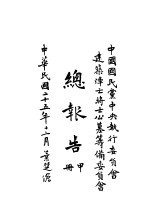 中國國民黨中央執行委員會
建築陣亡將士公墓籌備委員會
總報告
甲冊
中華民國二十五年十二月 葉楚傖